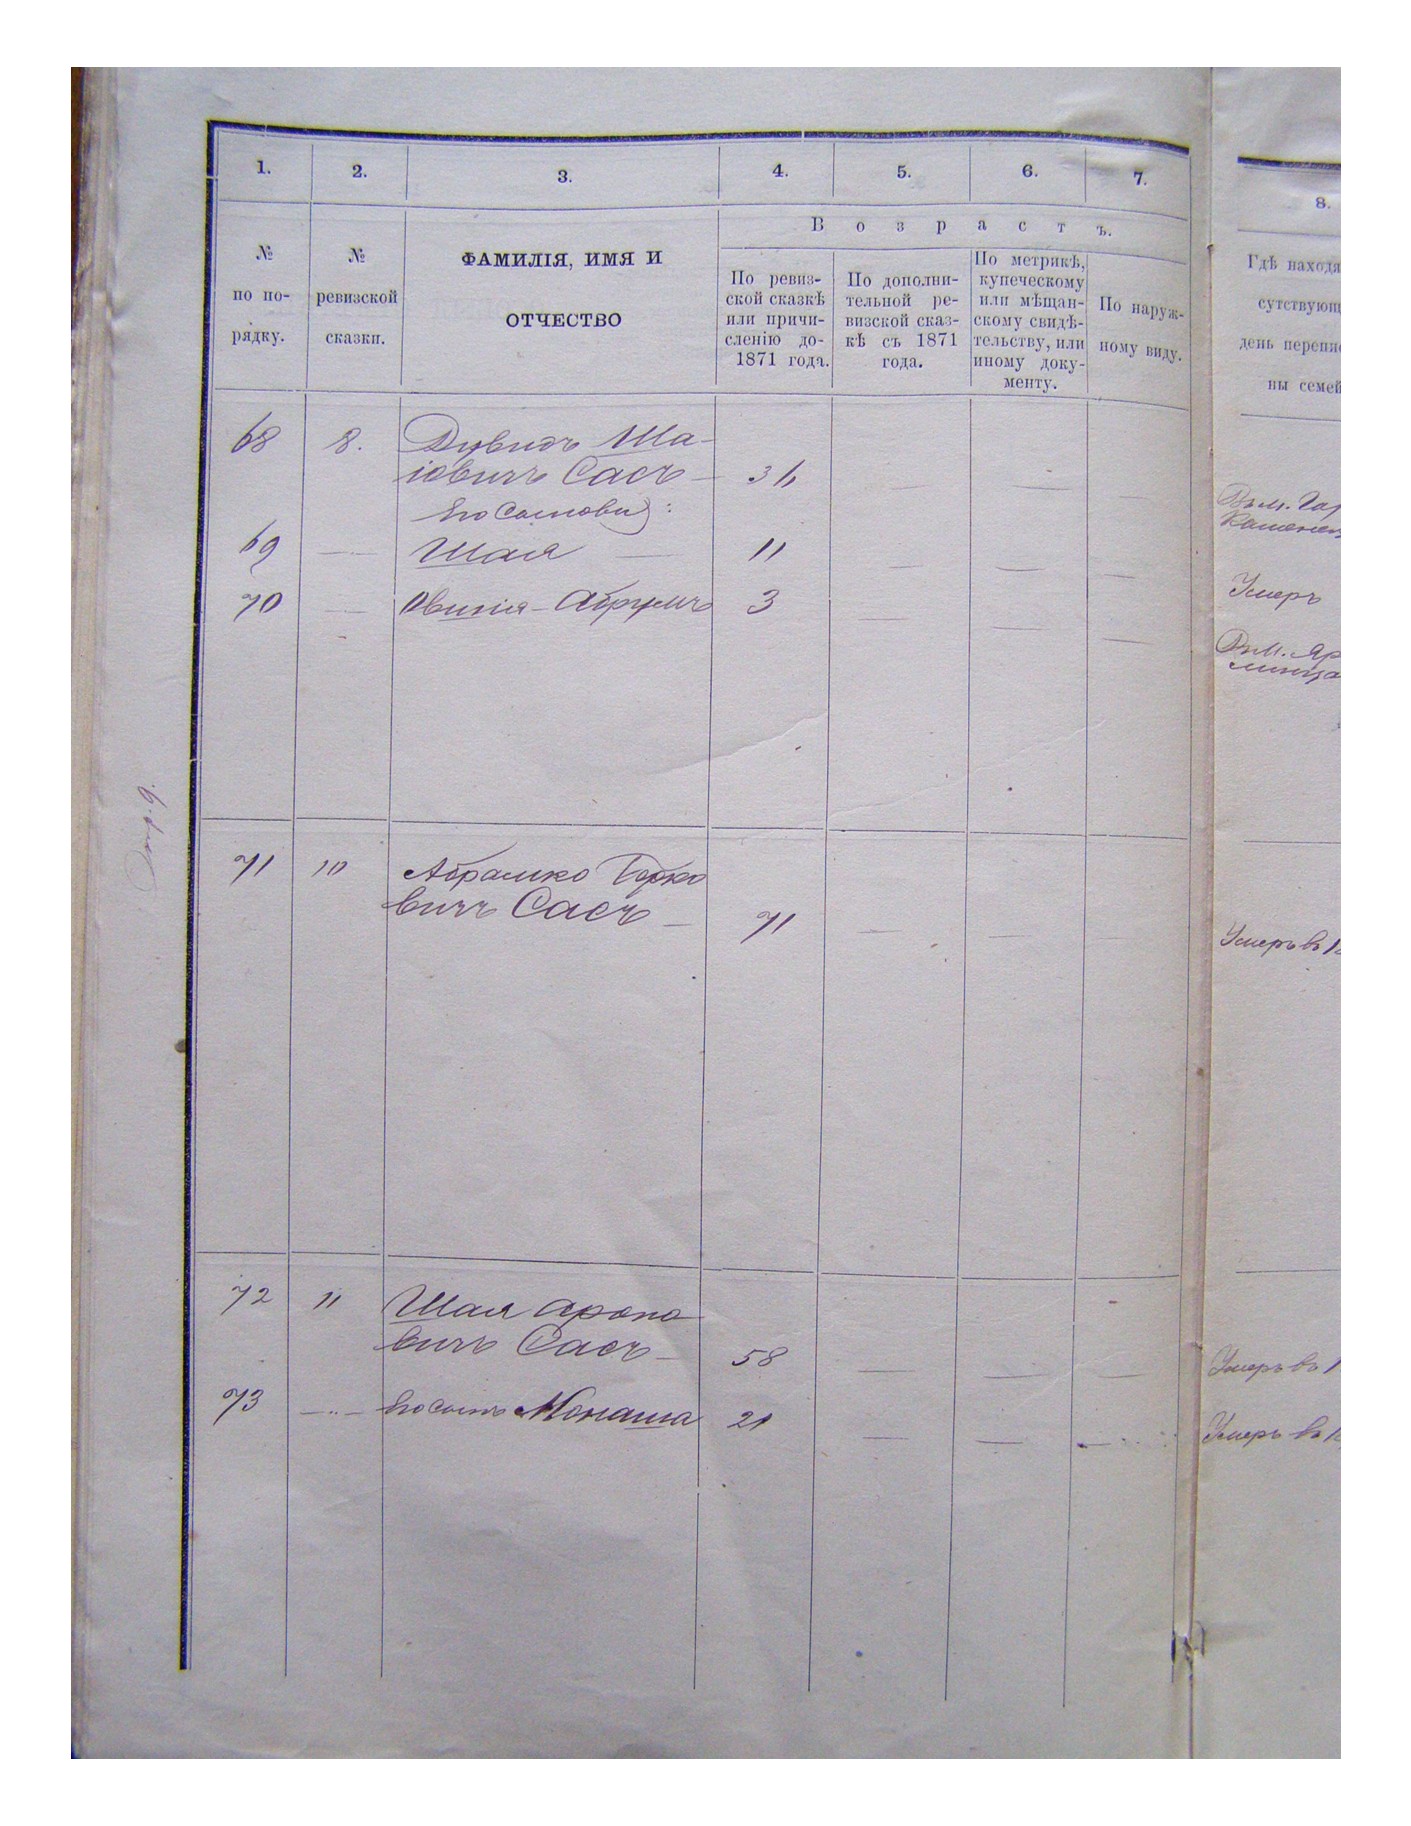 1. 2. 3. 4. 5. 6. 7. 8.
Возрастъ.
№ по по-
рядку.
№
ревизской
сказки.
ФАМИЛІЯ, ИМЯ И
ОТЧЕСТВО
По ревиз-
ской сказкѣ
или причи-
сленію до-
1871 года.
По дополни-
тельной ре-
визской сказ-
кѣ съ 1871
года.
По метрикѣ,
купеческому
или мѣщан-
скому свидѣ-
тельству, или
иному доку-
менту.
По наруж-
ному виду.
Гдѣ находя
сутствующ
день перепи
ны семей
68 8. Дувидъ Ша-
іовичъ Сасъ 36
Его Сыновья:
69 Шая 11
70 Абрумъ 3
Умеръ
71 10 Абрамко Берко
вичъ Сасъ 71
Умеръ въ 1
72 11 Шая Ароно
вичъ Сасъ 58
Умеръ въ 1
73 Его сынъ Монаша 21
Умеръ въ 1